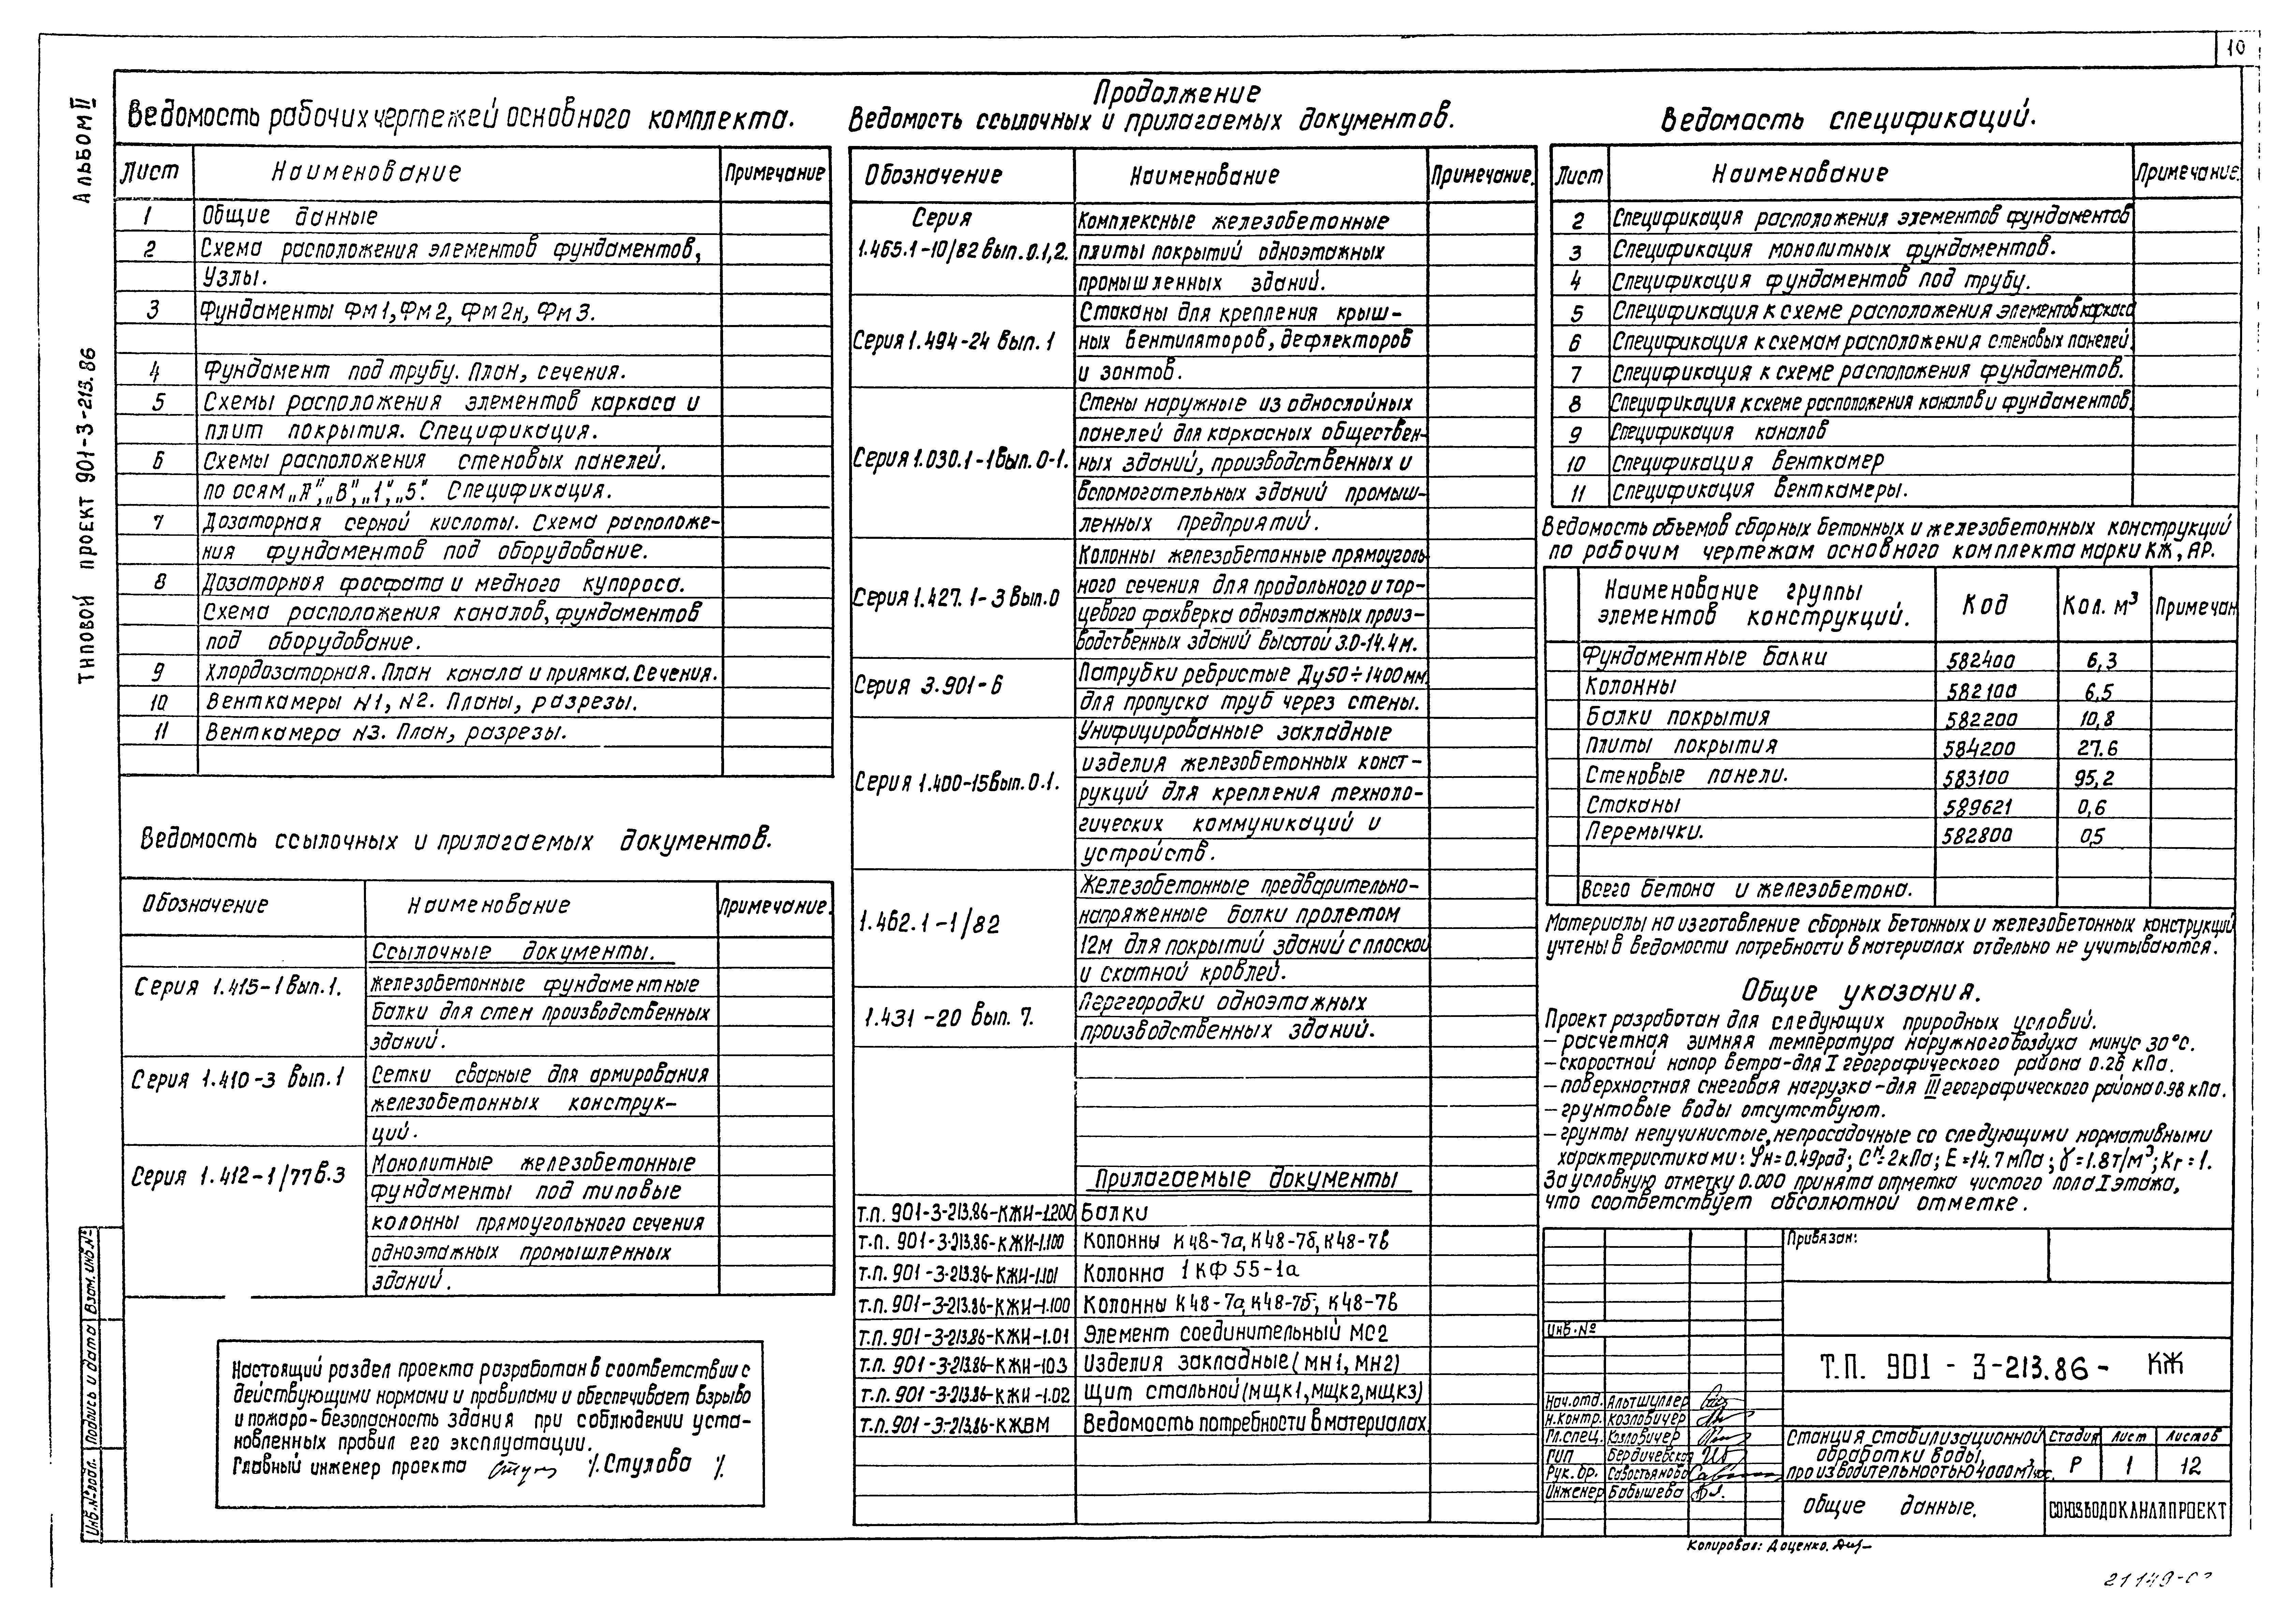 10
Альбом II
Типовой проект 901-3-213.86
Ведомость рабочих чертежей основного комплекта.
Лист Наименование Примечание
1 Общие данные
2 Схема расположения элементов фундаментов,
Узлы.
3 Фундаменты Фм1, Фм2, Фм2н, Фм3.
4 Фундамент под трубу. План, сечения.
5 Схемы расположения элементов каркаса и
плит покрытия. Спецификация.
6 Схемы расположения стеновых панелей.
по осям „А", „В", „1", „5". Спецификация.
7 Дозаторная серной кислоты. Схема расположе-
ния фундаментов под оборудование.
8 Дозаторная фосфата и медного купороса.
Схема расположения каналов, фундаментов
под оборудование.
9 Хлордозаторная. План канала и приямка. Сечения.
10 Венткамеры N1, N2. Планы, разрезы.
11 Венткамера N3. План, разрезы.
Ведомость ссылочных и прилагаемых документов.
Обозначение Наименование Примечание.
Ссылочные документы.
Серия 1.415-1 вып.1. железобетонные фундаментные
балки для стен производственных
зданий.
Серия 1.410-3 вып.1 Сетки сварные для армирования
железобетонных конструк-
ций.
Серия 1.412-1/77 в.3 Монолитные железобетонные
фундаменты под типовые
колонны прямоугольного сечения
одноэтажных промышленных
зданий.
Настоящий раздел проекта разработан в соответствии с
действующими нормами и правилами и обеспечивает взрыво
и пожаро-безопасность здания при соблюдении уста-
новленных правил его эксплуатации.
Главный инженер проекта /.Стулова /.
Продолжение
Ведомость ссылочных и прилагаемых документов.
Обозначение Наименование Примечание.
Серия Комплексные железобетонные
1.465.1-10/82 вып.0.1,2. плиты покрытий одноэтажных
промышленных зданий.
Стаканы для крепления крыш-
Серия 1.494-24 вып. 1 ных вентиляторов, дефлекторов
и зонтов.
Стены наружные из однослойных
панелей для каркасных обществен-
Серия 1.030.1-1 вып. 0-1. ных зданий, производственных и
вспомогательных зданий промыш-
ленных предприятий.
Колонны железобетонные прямоуголь
ного сечения для продольного и тор-
Серия 1.427.1-3 вып.0 цевого фахверка одноэтажных произ-
водственных зданий высотой 3.0-14.4м.
Серия 3.901-6 Патрубки ребристые Ду50÷1400мм.
для пропуска труб через стены.
Унифицированные закладные
изделия железобетонных конст-
Серия 1.400-15 вып. 0.1. рукций для крепления техноло-
гических коммуникаций и
устройств.
Железобетонные предварительно-
1.462.1-1/82 напряженные балки пролетом
12м для покрытий зданий с плоской
и скатной кровлей.
1.431-20 вып. 7. Перегородки одноэтажных
производственных зданий.
Прилагаемые документы
Т.п. 901-3-213.86-КЖИ-1.200 Балки
Т.п. 901-3-213.86-КЖИ-1.100 Колонны К48-7а, К48-7б, К48-7в
Т.п. 901-3-213.86-КЖИ-1.101 Колонна 1КФ55-1а
Т.п. 901-3-213.86-КЖИ-1.100 Колонны К48-7а, К48-7б, К48-7в
Т.п. 901-3-213.86-КЖИ-1.01 Элемент соединительный МС2
Т.п. 901-3-213.86-КЖИ-103 Изделия закладные (МН1, МН2)
Т.п. 901-3-213.86-КЖИ-1.02 Щит стальной (мщк1, мщк2, мщк3)
Т.п. 901-3-213.86-КЖВМ Ведомость потребности в материалах
Ведомость спецификаций.
Лист Наименование Примечание.
2 Спецификация расположения элементов фундаментов
3 Спецификация монолитных фундаментов.
4 Спецификация фундаментов под трубу.
5 Спецификация к схеме расположения элементов каркаса
6 Спецификация к схемам расположения стеновых панелей.
7 Спецификация к схеме расположения фундаментов.
8 Спецификация к схеме расположения каналов и фундаментов.
9 Спецификация каналов
10 Спецификация венткамер
11 Спецификация венткамеры.
Ведомость объемов сборных бетонных и железобетонных конструкций
по рабочим чертежам основного комплекта марки КЖ, АР.
Наименование группы
элементов конструкций. Код Кол. м³ Примечан
Фундаментные балки 582400 6,3
Колонны 582100 6,5
Балки покрытия 582200 10,8
Плиты покрытия 584200 27.6
Стеновые панели. 583100 95,2
Стаканы 589621 0,6
Перемычки. 582800 0,5
Всего бетона и железобетона.
Материалы на изготовление сборных бетонных и железобетонных конструкций
учтены в ведомости потребности в материалах отдельно не учитываются.
Общие указания.
Проект разработан для следующих природных условий.
- расчетная зимняя температура наружного воздуха минус 30°С.
- скоростной напор ветра-для I географического района 0.26 кПа.
- поверхностная снеговая нагрузка-для III географического района 0.98 кПа.
- грунтовые воды отсутствуют.
- грунты непучинистые, непросадочные со следующими нормативными
характеристиками: φн=0.49рад; Сн=2кПа; Е=14.7мПа; γ=1.8т/м³; Кг=1.
За условную отметку 0.000 принята отметка чистого пола I этажа,
что соответствует абсолютной отметке.
Привязан:
Инв.№
Т.П. 901-3-213.86- КЖ
Нач.отд. Альтшуллер
Н.контр. Козловичер
Гл.спец. Козловичер
ГИП Бердичевская
Рук.бр. Савостьянова
Инженер Бабышева
Станция стабилизационной
обработки воды,
производительностью 4000м³/час.
Стадия Лист Листов
Р 1 12
Общие данные.
СОЮЗВОДОКАНАЛПРОЕКТ
Копировал: Доценко.
Инв.№подл. Подпись и дата Взам.инв.№